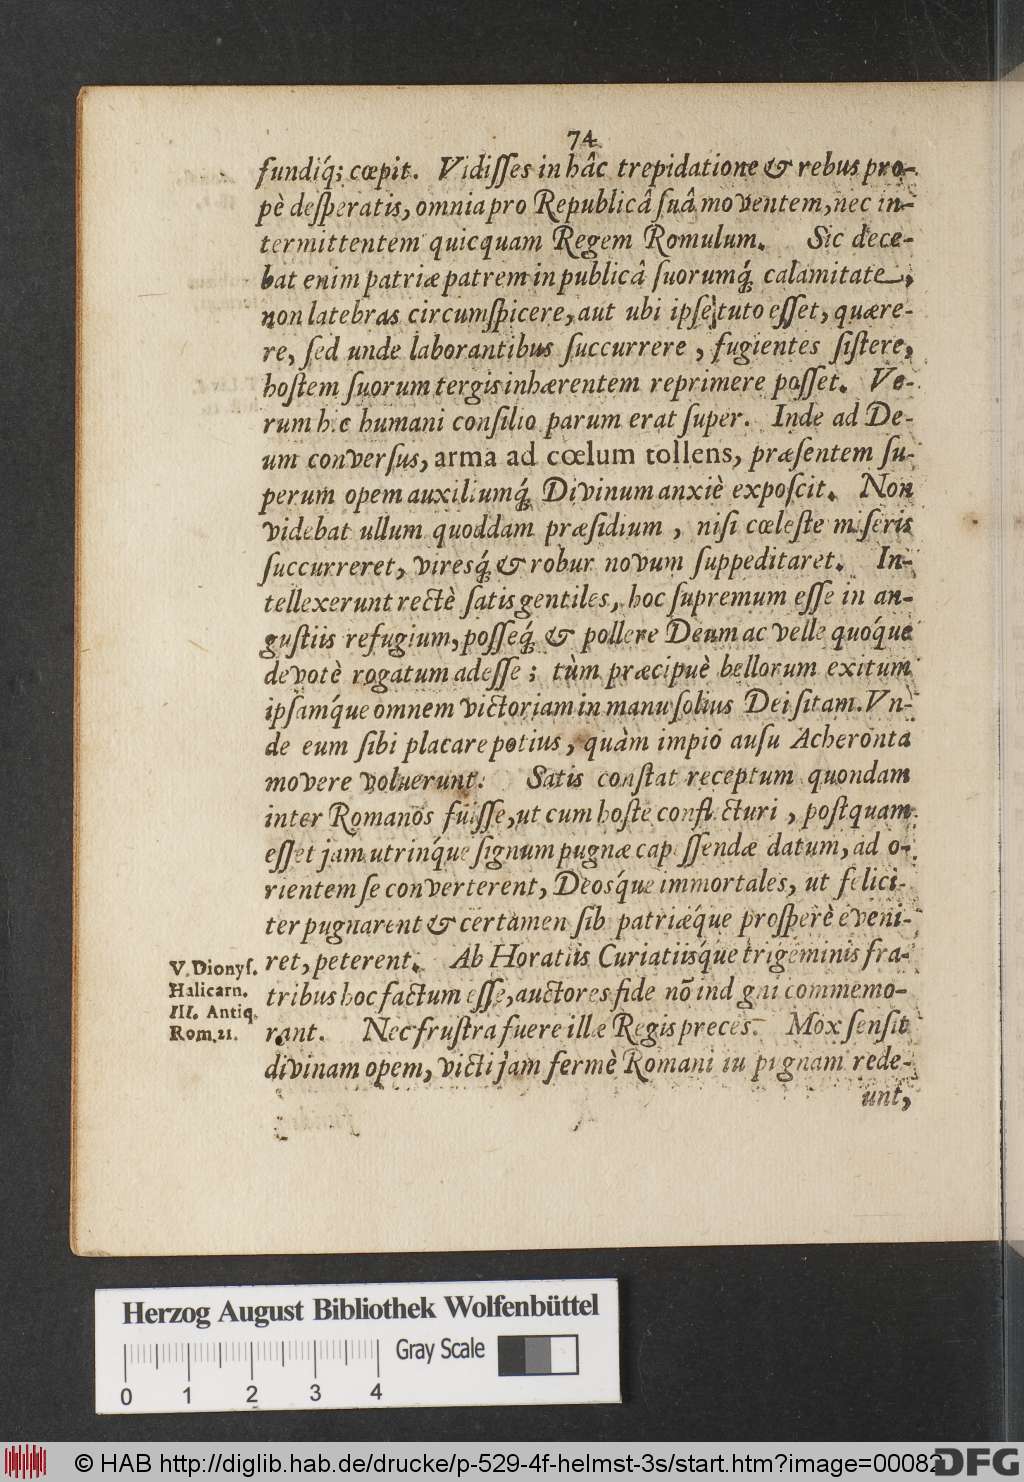 74
fundiq́; cœpit. Vidiſſes in hâc trepidatione & rebus pro-
pè deſperatis, omnia pro Republicâ ſuâ moventem, nec in-
termittentem quicquam Regem Romulum. Sic dece-
bat enim patriæ patrem in publicâ ſuorumq́; calamitate,
non latebras circumſpicere, aut ubi ipſe tuto eſſet, quære-
re, ſed unde laborantibus ſuccurrere, fugientes ſiſtere,
hoſtem ſuorum tergis inhærentem reprimere poſſet. Ve-
rum hic humani conſilio parum erat ſuper. Inde ad De-
um converſus, arma ad cœlum tollens, præſentem ſu-
perum opem auxiliumq́; Divinum anxiè expoſcit. Non
videbat ullum quoddam præſidium, niſi cœleſte miſeris
ſuccurreret, viresq́; & robur novum ſuppeditaret. In-
tellexerunt rectè ſatis gentiles, hoc ſupremum eſſe in an-
guſtiis refugium, poſſeq́; & pollere Deum ac velle quoq́ue
devotè rogatum adeſſe; tùm præcipuè bellorum exitum
ipſamq́ue omnem victoriam in manu ſolius Dei ſitam. Un-
de eum ſibi placare potius, quàm impio auſu Acheronta
movere voluerunt. Satis conſtat receptum quondam
inter Romanos fuiſſe, ut cum hoſte conflicturi, poſtquam
eſſet jam utrinq́ue ſignum pugnæ capeſſendæ datum, ad o-
rientem ſe converterent, Deosq́ue immortales, ut felici-
ter pugnarent & certamen ſibi patriæq́ue proſperè eveni-
ret, peterent. Ab Horatiis Curiatiisq́ue trigeminis fra-
tribus hoc factum eſſe, auctores fide nõ indigni commemo-
rant. Nec fruſtra fuere illæ Regis preces. Mox ſenſit
divinam opem, victi jam fermè Romani in pugnam rede-
unt,
V. Dionyſ.
Halicarn.
III. Antiq.
Rom. 21.
Herzog August Bibliothek Wolfenbüttel
Gray Scale
0 1 2 3 4
© HAB http://diglib.hab.de/drucke/p-529-4f-helmst-3s/start.htm?image=00082
DFG